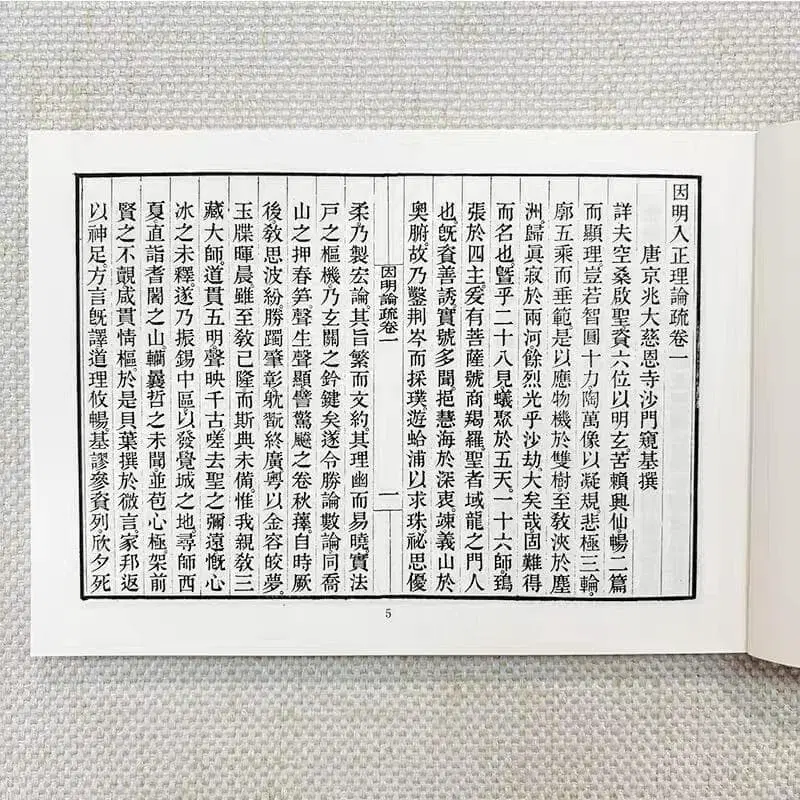 因明入正理論疏卷一
唐京兆大慈恩寺沙門窺基撰
詳夫空桑啟聖資六位以明玄。苦賴興仙暢二篇
而顯理豈若智圓十力陶萬像以凝規悲極三輪。
廓五乘而垂範是以應物機於雙樹至教浹於塵
洲。歸真寂於兩河餘烈光乎沙劫。大矣哉固難得
而名也。暨乎二十八見蟻聚於五天。一十六師。鵄
張於四主。爰有菩薩號商羯羅。聖者域龍之門人
也。既資善誘實號多聞。挹慧海於深衷。竦義山於
奧腑。故乃鑿荊岑而採璞。遊蛤浦以求珠。祕思優
因明論疏卷一
一
柔。乃製宏論其旨繁而文約。其理幽而易曉。實法
戶之樞機。乃玄關之鈐鍵矣。遂令勝論數論同喬
山之押春笋。聲生聲顯譬驚飈之卷秋蘀。自時厥
後教思波紛。勝躅肇彰躭翫終廣粵以金容皎夢。
玉牒暉晨雖至教已隆而斯典未備。惟我親教三
藏大師。道貫五明聲映千古嗟去聖之彌遠慨心
冰之未釋。遂乃振錫中區。以發覺城之地尋師西
夏。直詣耆闍之山轥曩哲之未聞並苞心極。架前
賢之不覿咸貫情樞。於是貝葉撰於微言。家邦返
以神足。方言既譯道理攸暢。基謬參資列欣夕死
5